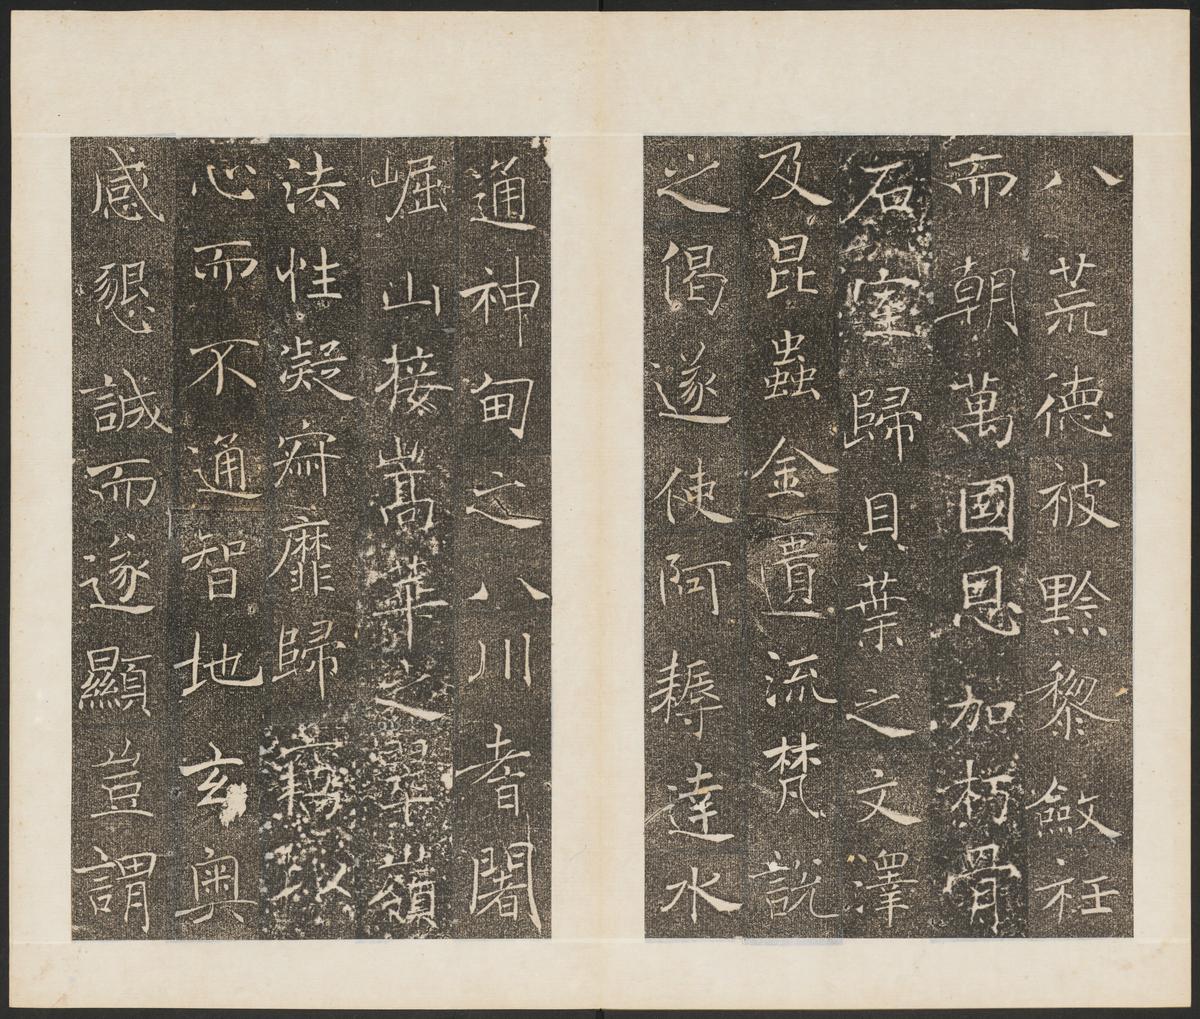 八荒德被黔黎斂衽
而朝萬國恩加朽骨
石室歸貝葉之文澤
及昆蟲金匱流梵說
之偈遂使阿耨達水
通神甸之八川耆闍
崛山接嵩華之翠嶺
法性凝寂靡歸竊以
心而不通智地玄奧
感懇誠而遂顯豈謂